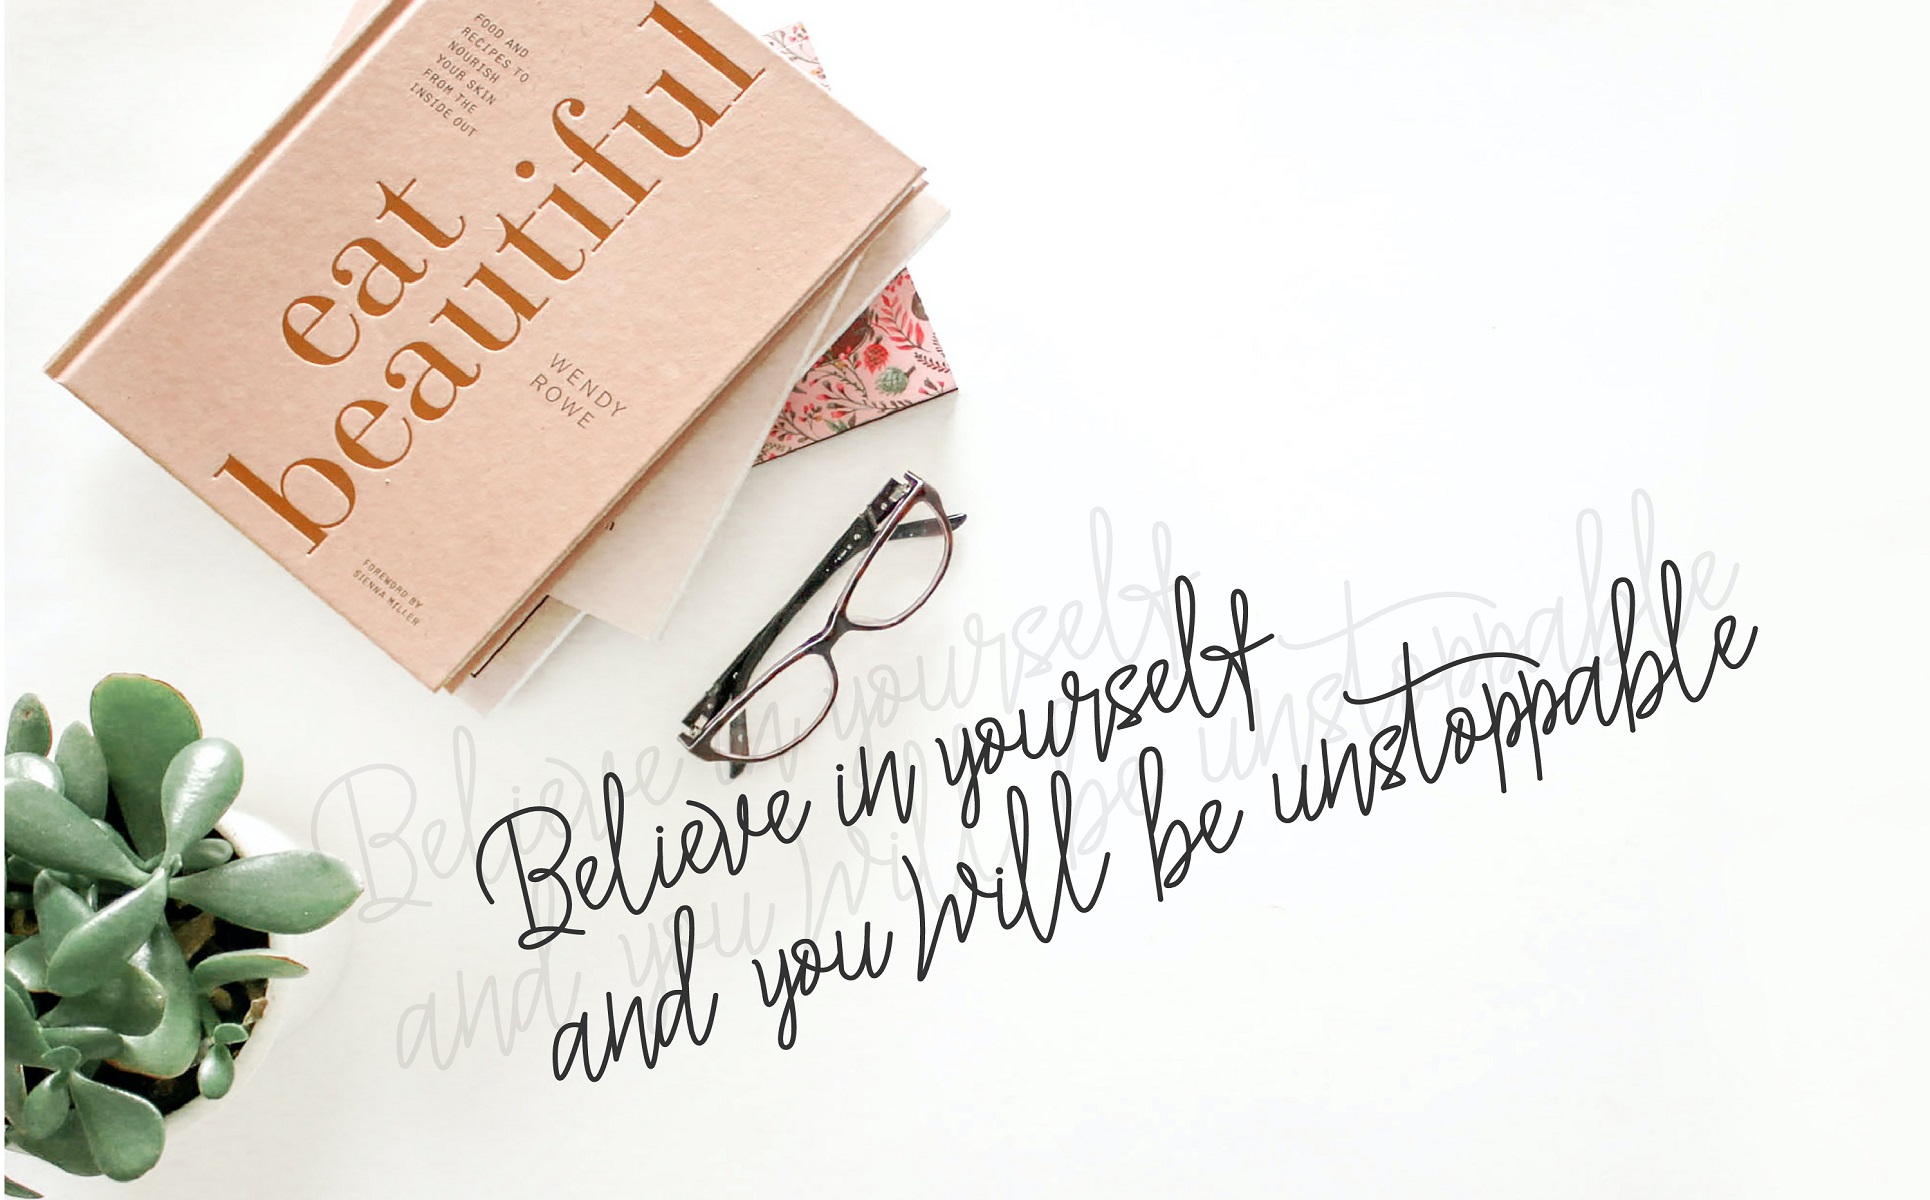 FOOD AND
RECIPES TO
NOURISH
YOUR SKIN
FROM THE
INSIDE OUT
eat
beautiful
WENDY
ROWE
FOREWORD BY
SIENNA MILLER
Believe in yourself
and you will be unstoppable
Believe in yourself
and you will be unstoppable